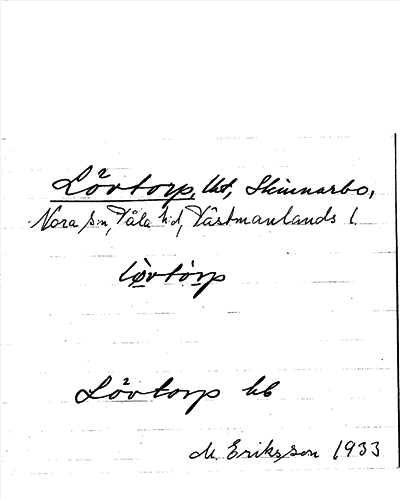 Lövtorp, lht, Skinnarbo,
Nora sn, Våla hd, Västmanlands l.
lø̀vtòrp
Lövtorp hb
M. Eriksson 1933